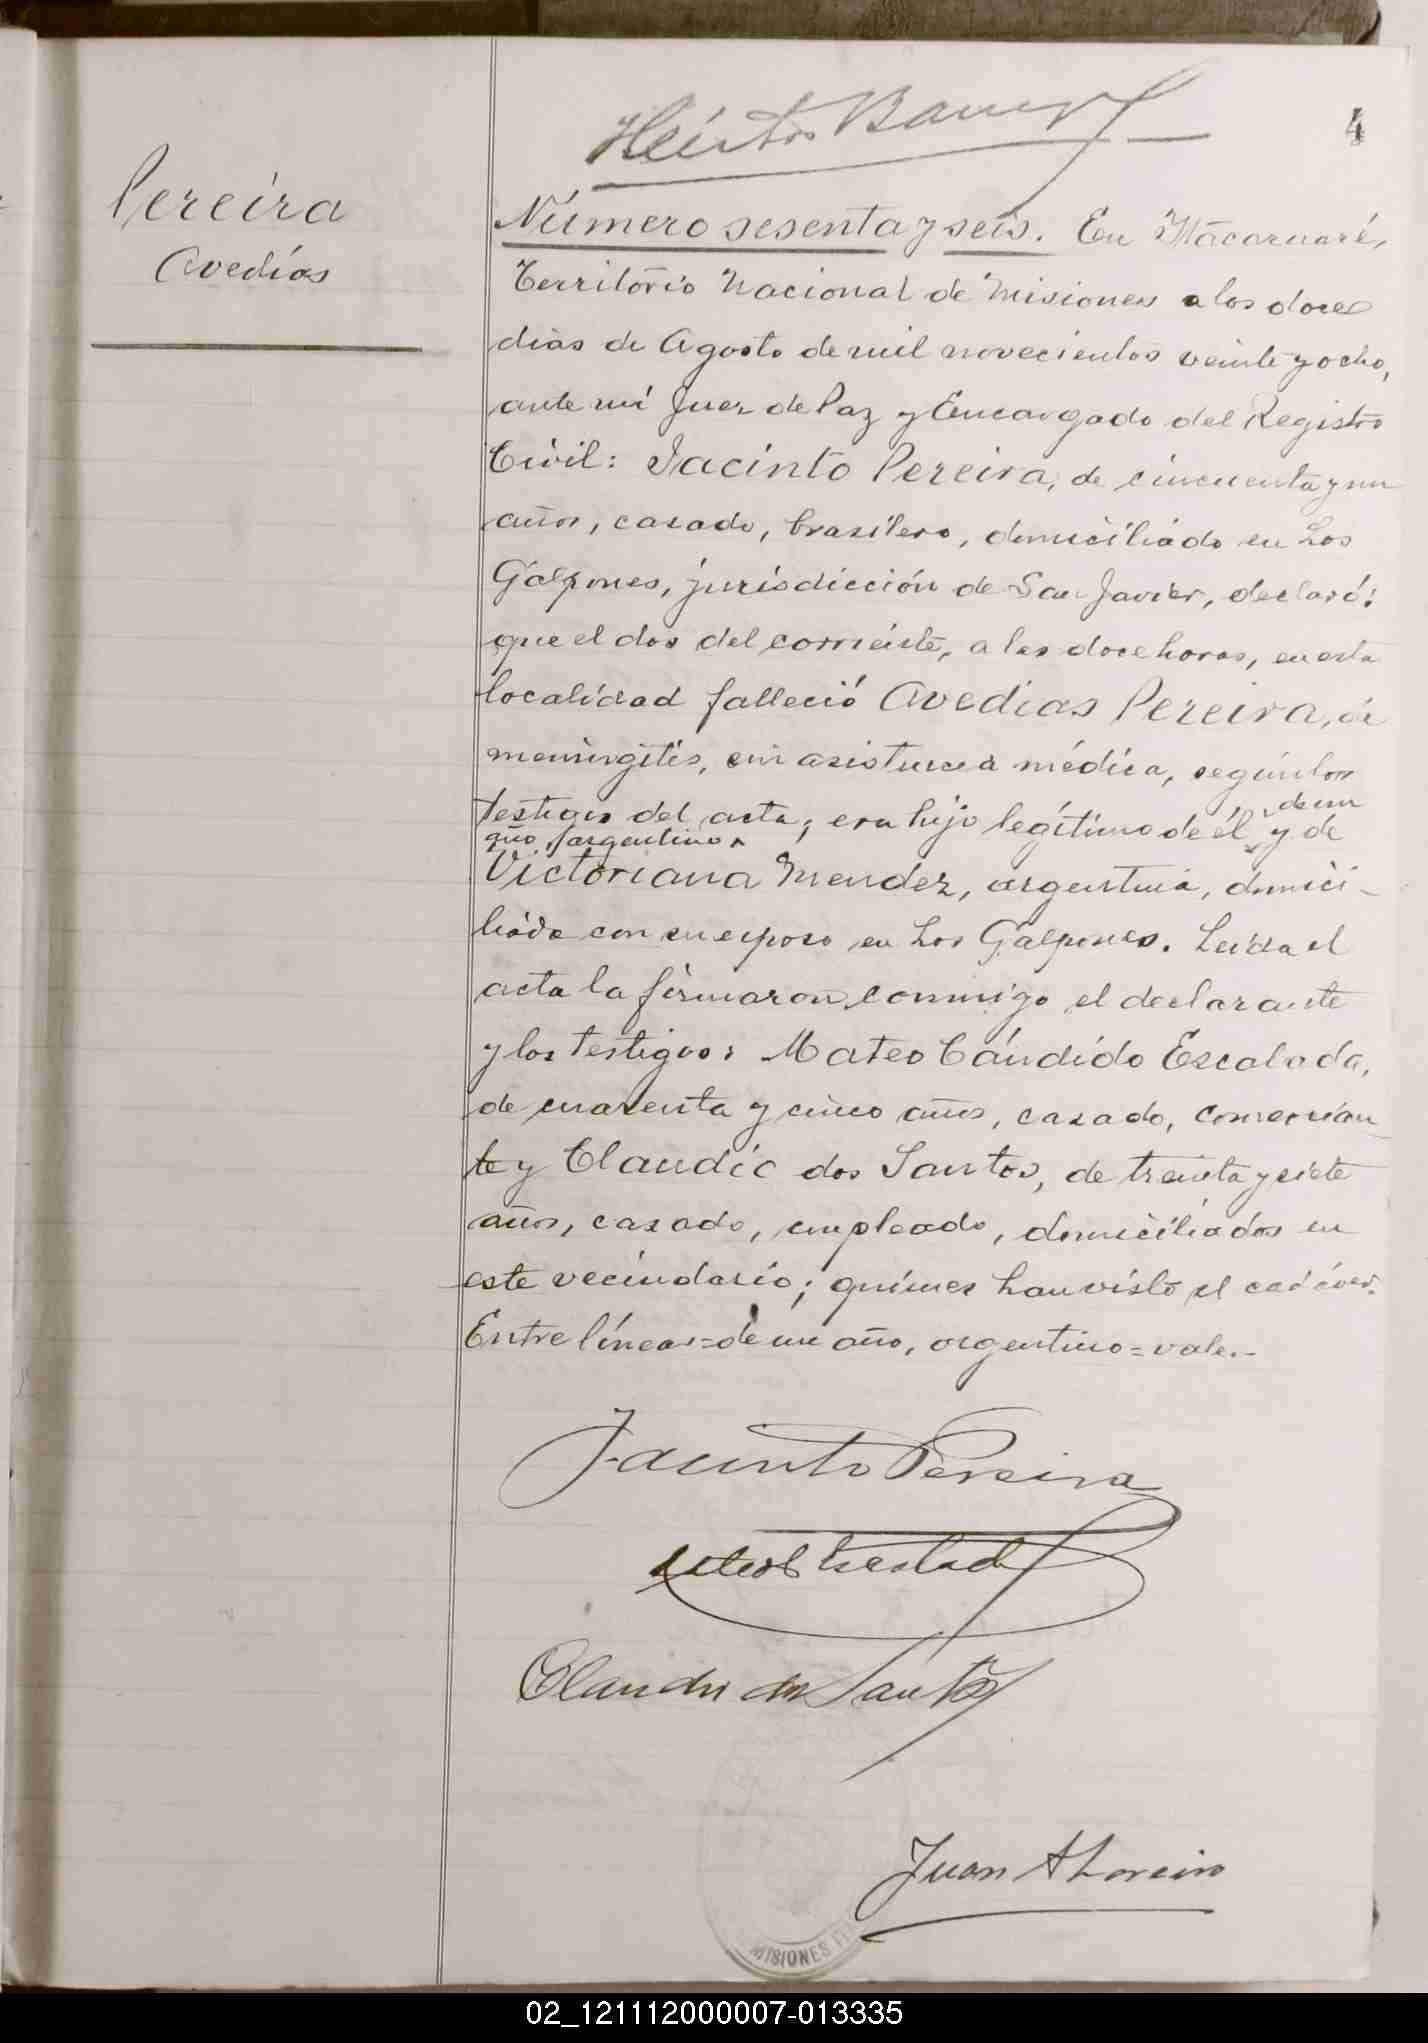 4
Pereira
Avedias
Número sesenta y seis. En Itacaruaré,
Territorio Nacional de Misiones a los doce
dias de Agosto de mil novecientos veinte y ocho,
ante mi Juez de Paz y Encargado del Registro
Civil: Jacinto Pereira, de cincuenta y un
años, casado, brasilero, domiciliado en Los
Galpones, jurisdicción de San Javier, declaró:
que el dos del corriente, a las doce horas, en esta
localidad falleció Avedias Pereira, de
meningitis, sin asistencia médica, según los
testigos del acta; era hijo legítimo de él, y de
de un
año, argentino
Victoriana Mendez, argentina, domici-
liada con su esposo en Los Galpones. Leida el
acta la firmaron conmigo el declarante
y los testigos: Mateo Cándido Escalada,
de cuarenta y cinco años, casado, comercian-
te y Claudio dos Santos, de treinta y siete
años, casado, empleado, domiciliados en
este vecindario; quienes han visto el cadáver.
Entre líneas=de un año, argentino=vale.-
Jacinto Pereira
Claudio dos Santos
Juan A Loreiro
MISIONES
02_121112000007-013335